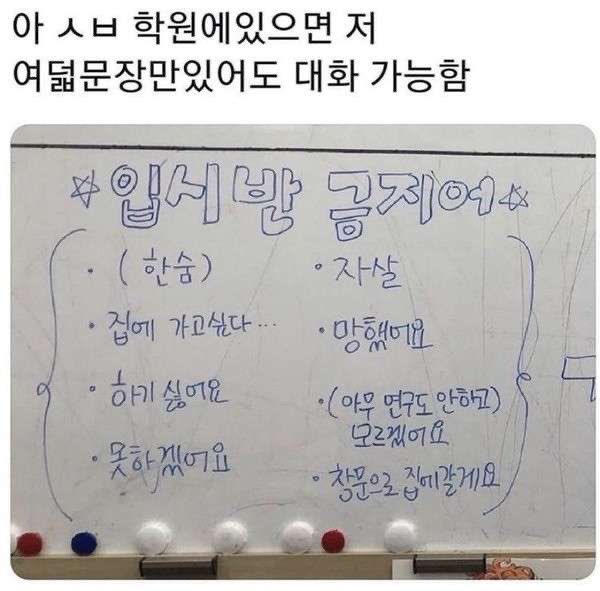 아 ㅅㅂ 학원에있으면 저
여덟문장만있어도 대화 가능함
☆입시반 금지어☆
· (한숨)
· 집에 가고싶다...
· 하기 싫어요
· 못하겠어요
· 자살
· 망했어요
· (아무 연구도 안하고)
모르겠어요
· 창문으로 집에갈게요